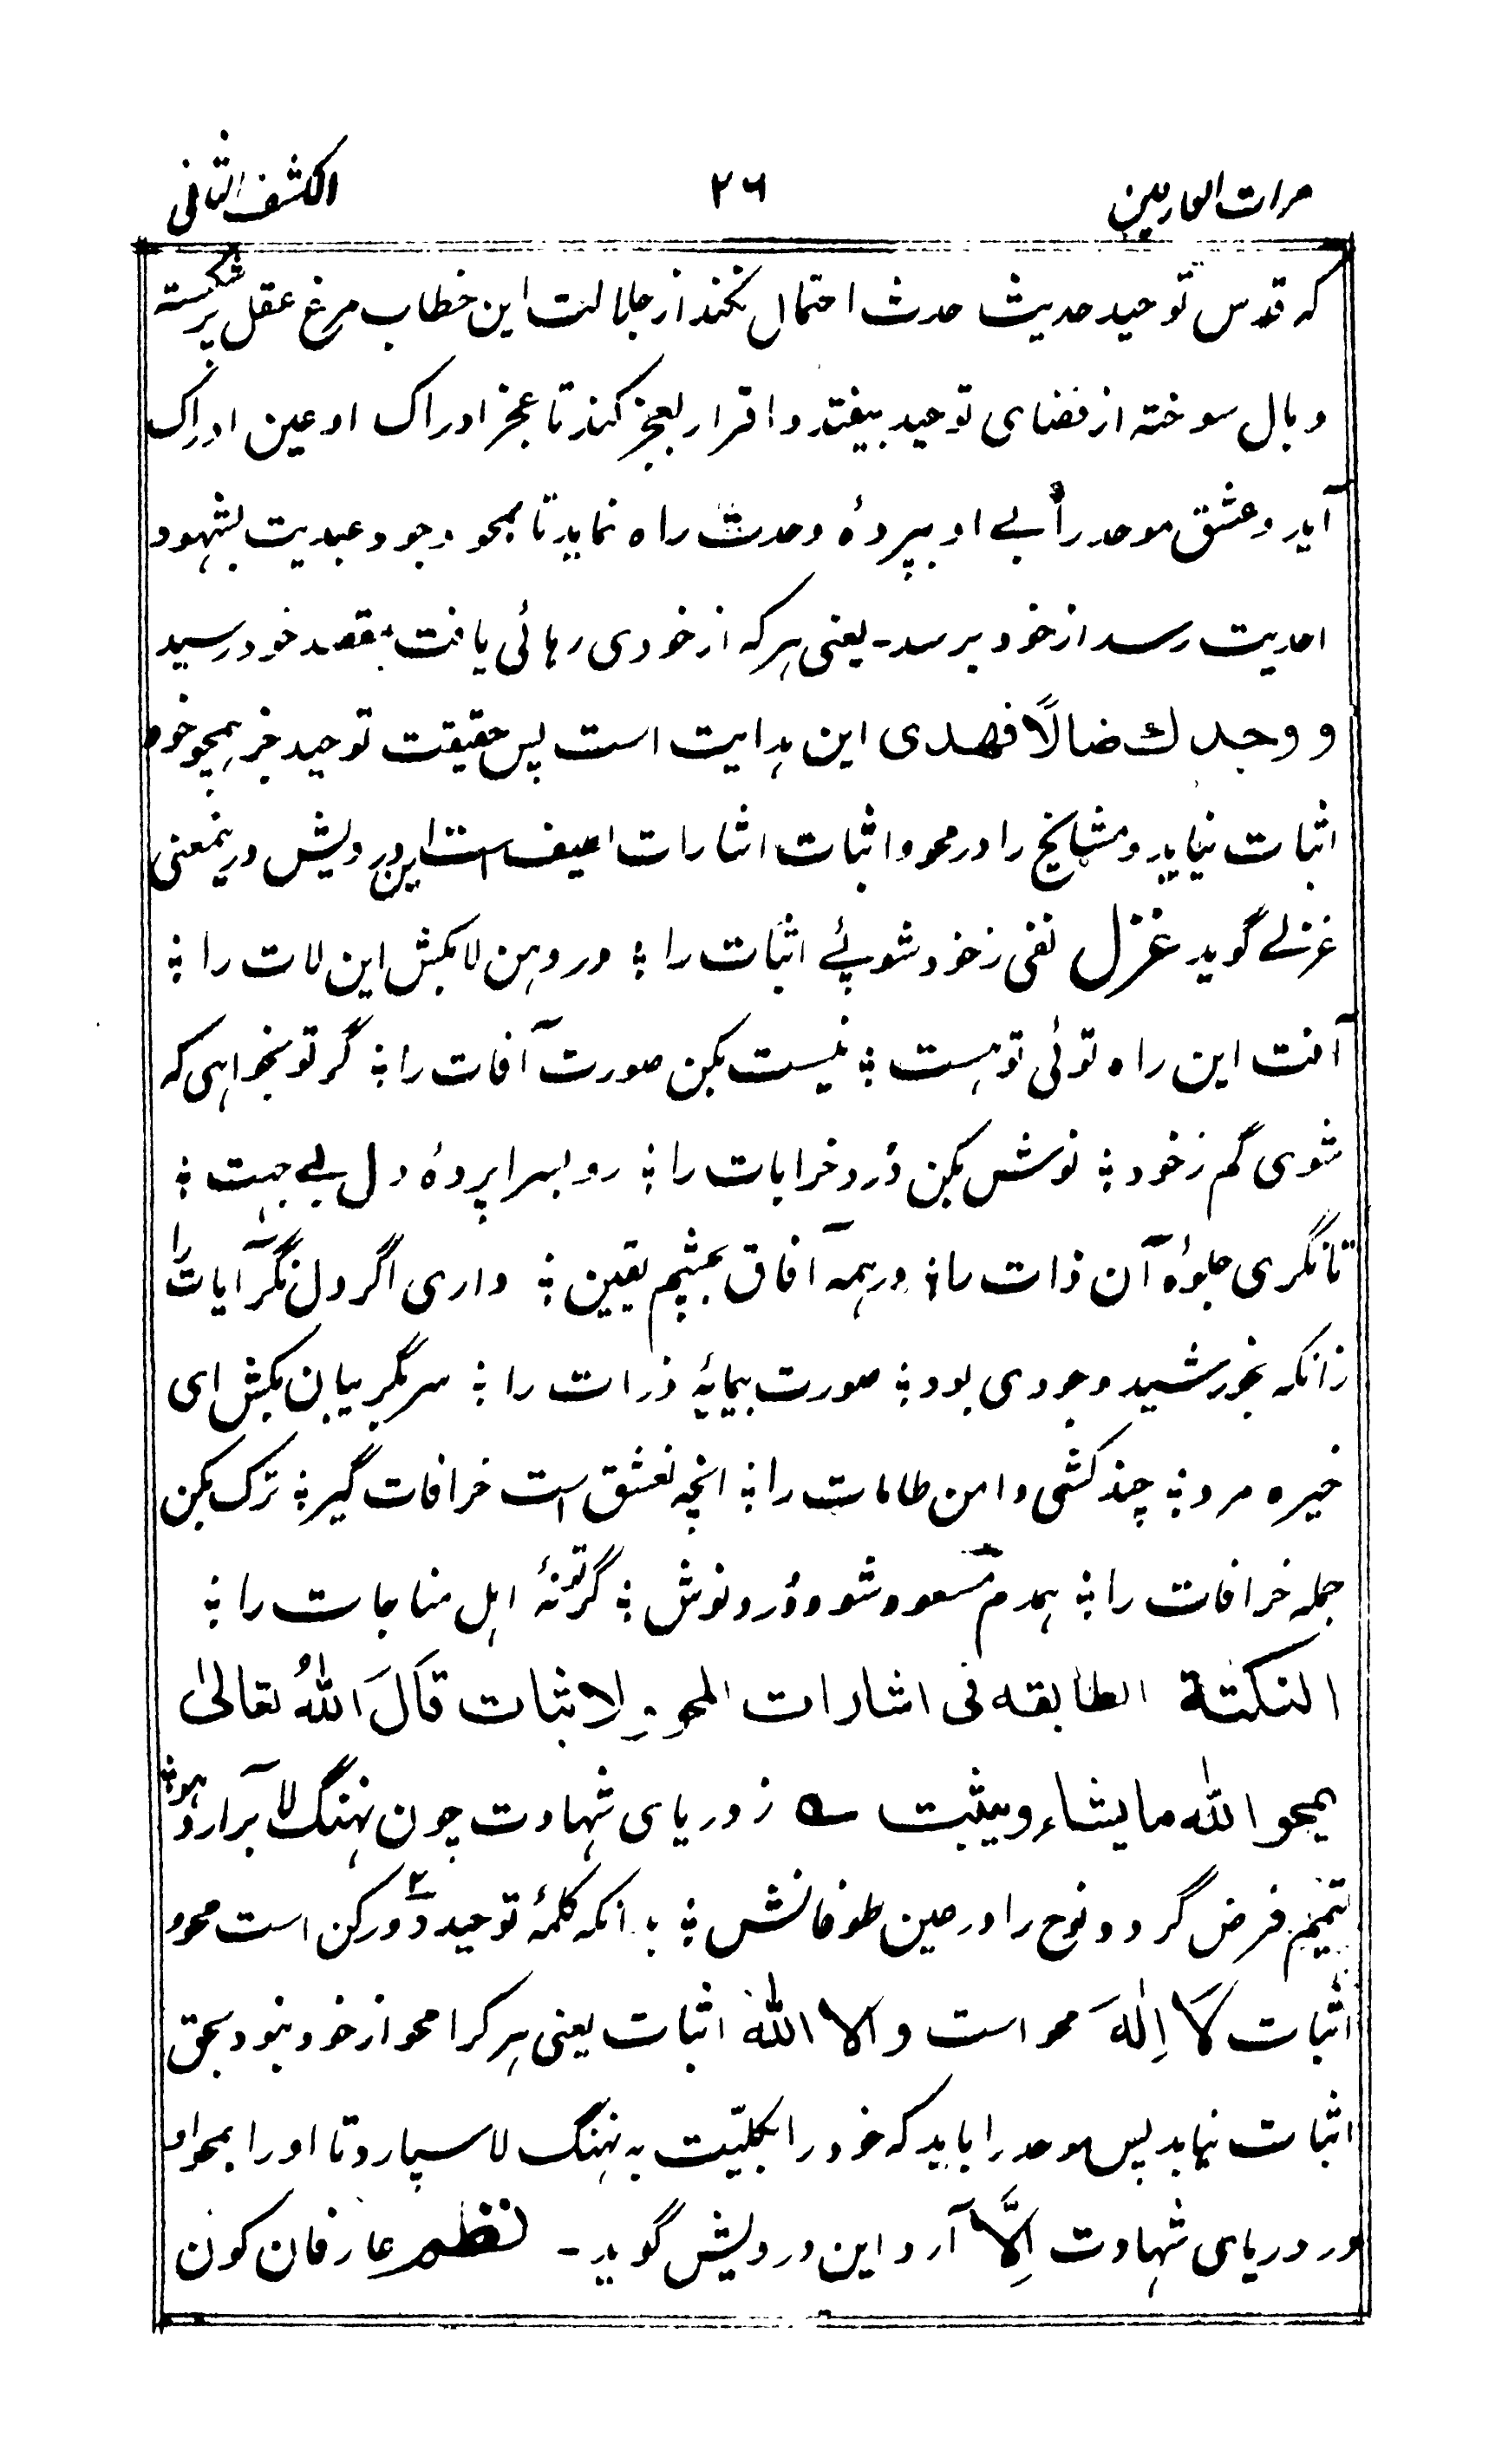 مرات العارفین ۲۶ الکشف الثانی
که قدس توحید حدیث حدث احتمال نکند از جلالت این خطاب مرغ عقل پر شکسته
و بال سوخته از فضای توحید بیفتد و اقرار بعجز کند تا عجز ادراک او عین ادراک
آید و عشق موحد را بے او بپردهٔ وحدت راه نماید تا بمحو وجود عبدیت بشهود
احدیت رسد از خود برسد۔ یعنی هرکه از خودی رهائی یافت بمقصد خود رسید
و وجدك ضالًا فهدی این هدایت است پس حقیقت توحید جز بمحو خود
اثبات نیاید و مشایخ را در محو و اثبات اشارات است این درویش درینمعنی
غزلے گوید غزل نفی ز خود شو پئے اثبات را ؛ در دهن لا بکش این لات را ؛
آفت این راه توئی تو هست ؛ نیست بکن صورت آفات را ؛ گر تو بخواهی که
شوی گم ز خود ؛ نوش بکن دُرد خرابات را ؛ رو بسراپردهٔ دل بے جهت ؛
تا نگری جلوهٔ آن ذات را ؛ در همه آفاق بچشم یقین ؛ داری اگر دل نگر آیات را
زانکه بخورشید وجودی بود ؛ صورت بیمایهٔ ذرات را ؛ سر بگریبان بکش ای
خیره مرد ؛ چند کشی دامن طامات را ؛ انچه نعشق است خرافات گیر ؛ ترک بکن
جمله خرافات را ؛ همدم مسعود شو و دُرد نوش ؛ گر تو نهٔ اهل مناجات را ؛
النکتة الطابقه فی اشارات المحو والاثبات قَالَ اللهُ تعالیٰ
یمحو الله ما یشاء و یثبت ؎ ز دریای شهادت چون نهنگ لا برآرد هو ؛
تیمم فرض گردد نوح را در عین طوفانش ؛ بدانکه کلمهٔ توحید دو رکن است محو و
اثبات لَا اِلٰهَ محو است و الا الله اثبات یعنی هرکرا محو از خود نبود بحق
اثبات نیابد پس موحد را باید که خود را بکلیّت به نهنگ لا سپارد تا او را بمحو او
در دریای شهادت اِلَّا آرد این درویش گوید۔ نظم عارفان کون